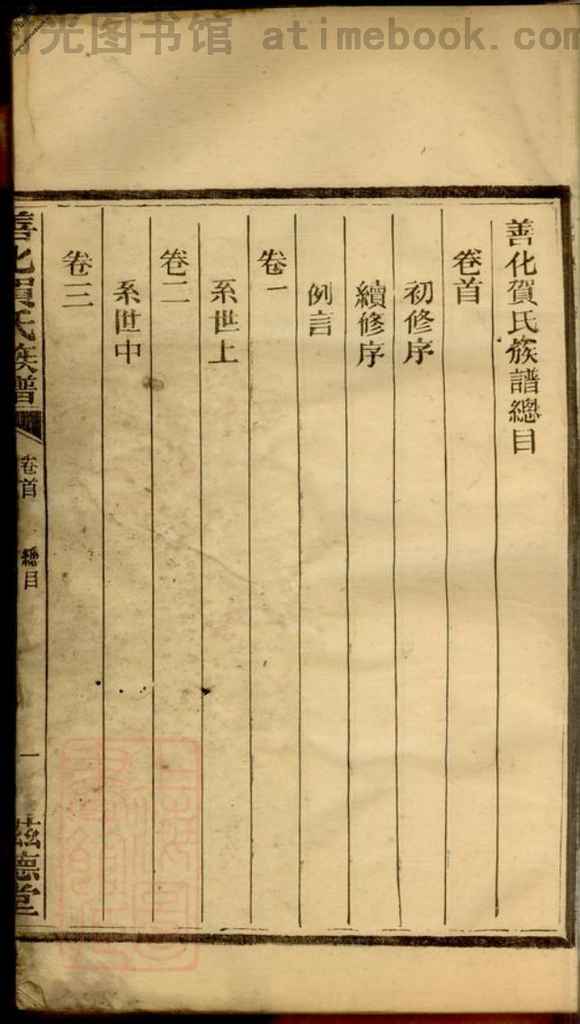 光图书馆 atimebook.com
善化賀氏族譜總目
卷首
初修序
續修序
例言
卷一
系世上
卷二
系世中
卷三
善化賀氏族譜
卷首
總目
一
茲德堂